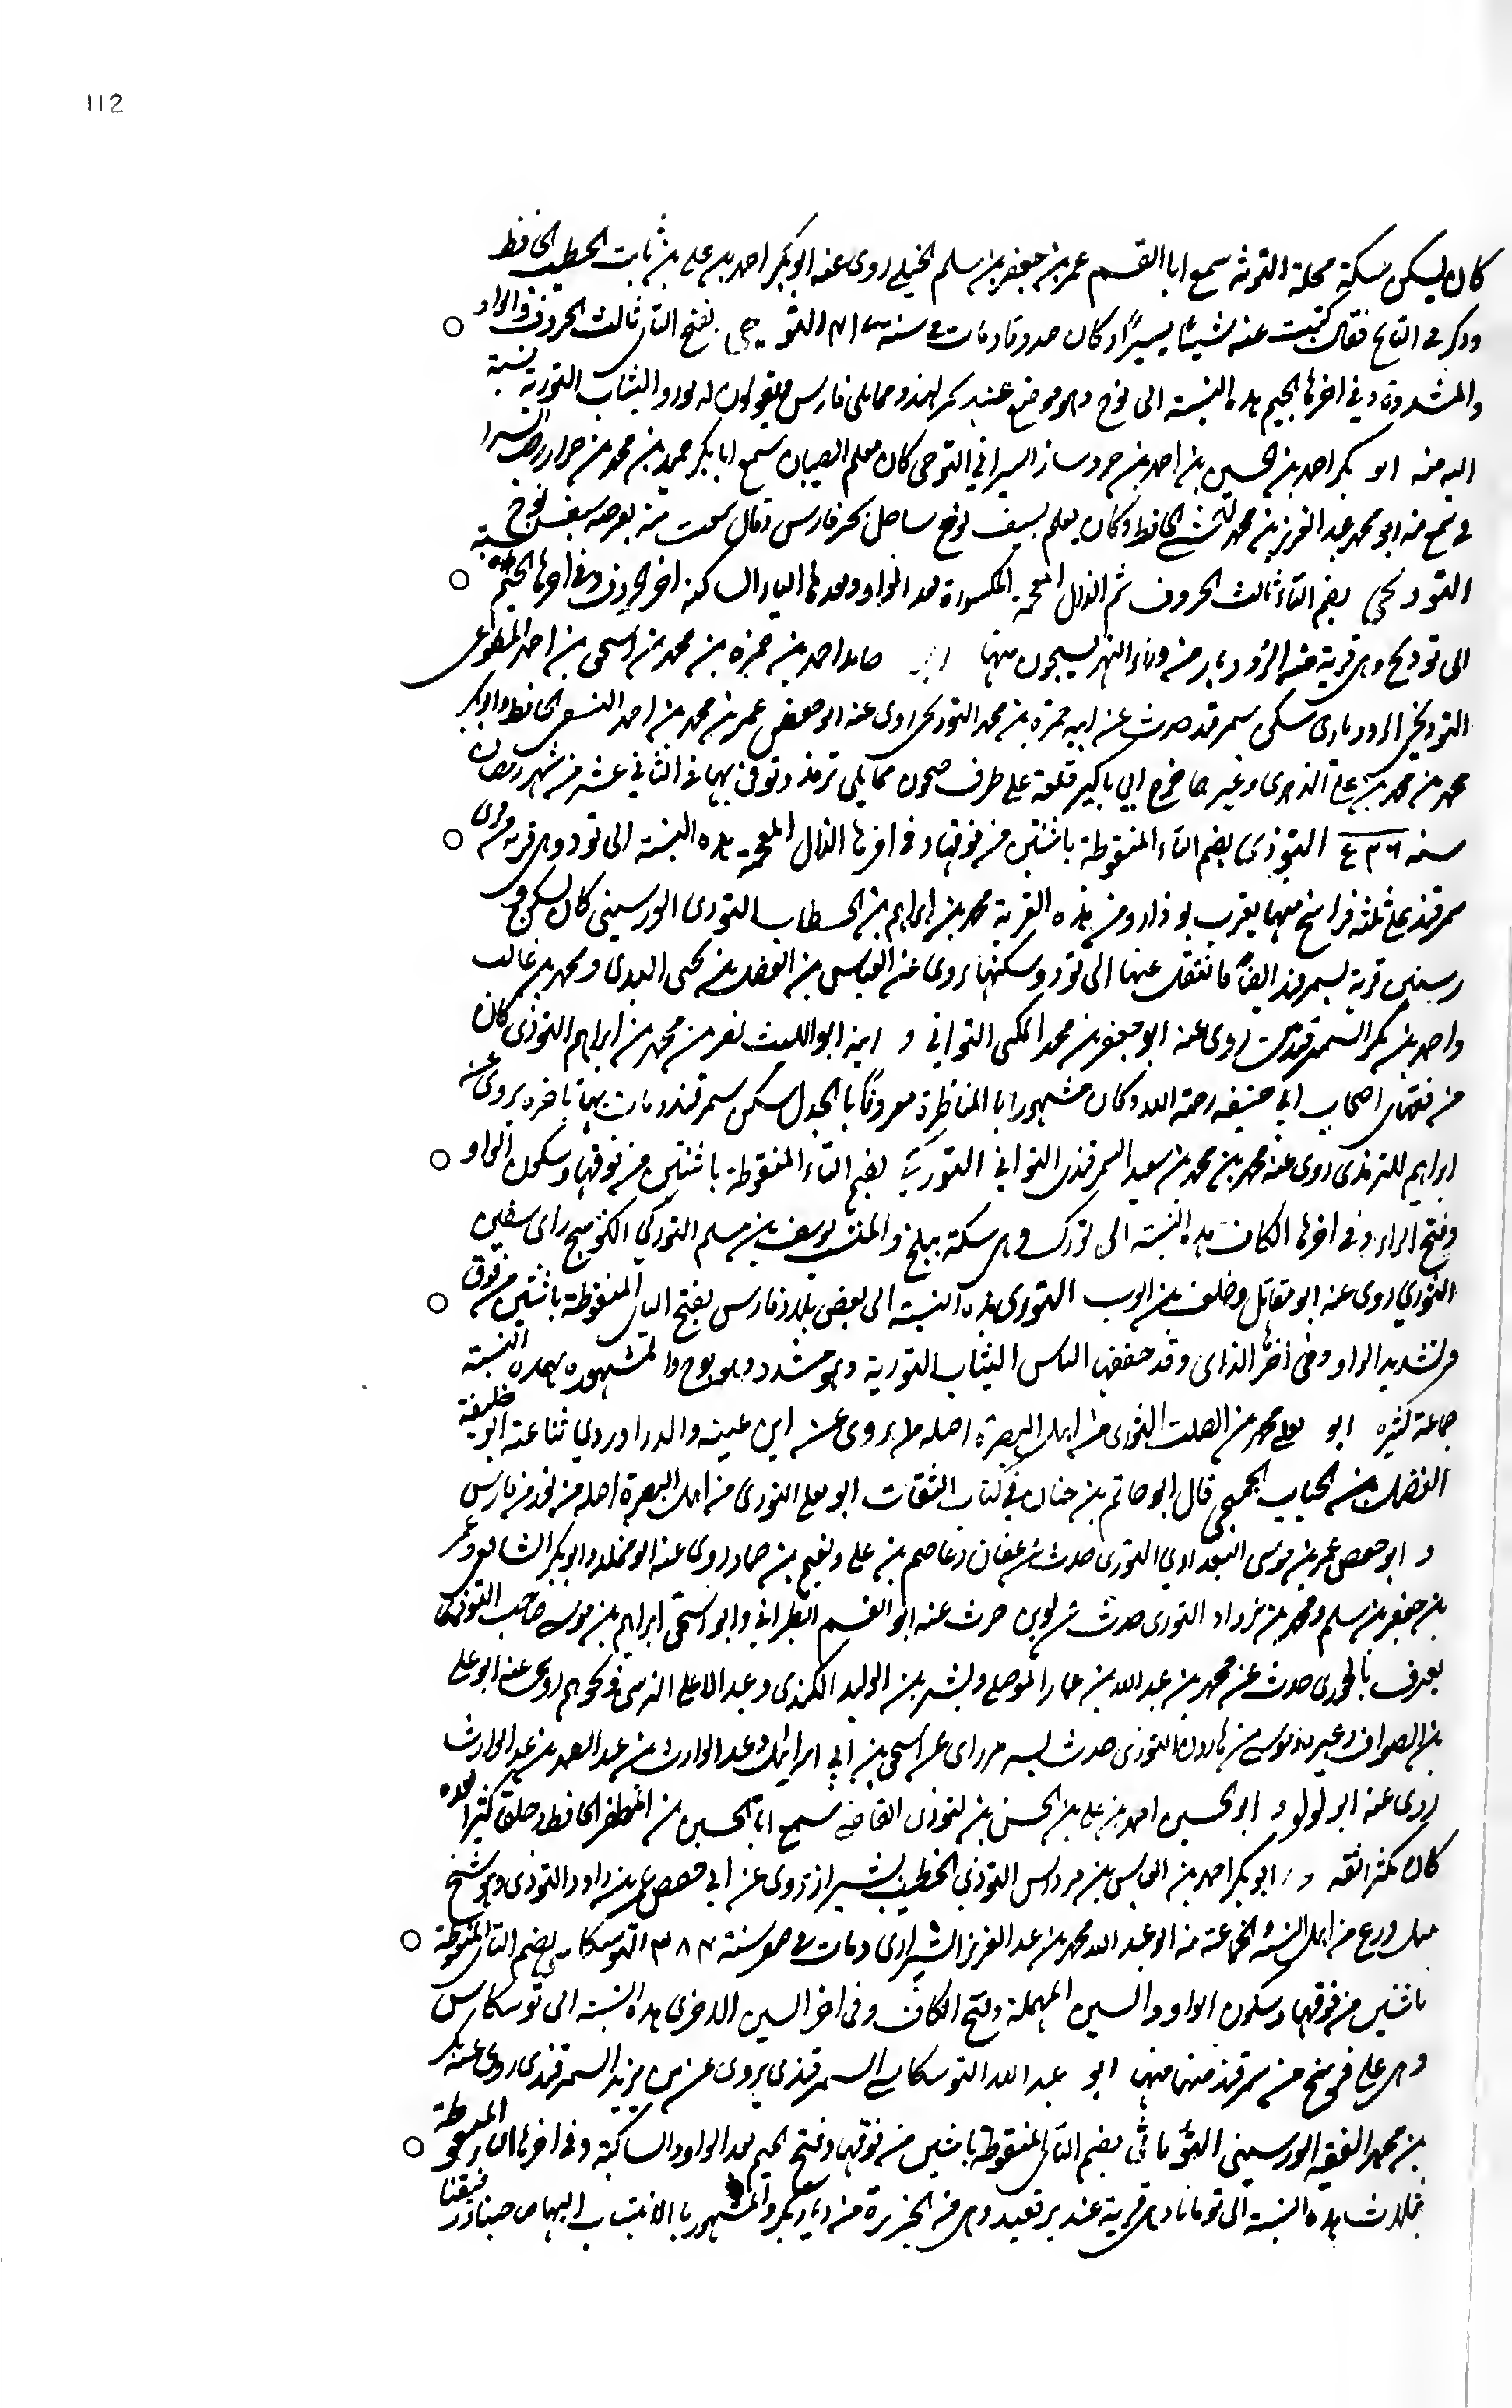 112
كان يسكن سكة محلة التوثه سمع ابا القسم عمر بن جعفر بن سلم الختلى روى عنه ابو بكر احمد بن على بن ثابت الخطيب الحافظ
وذكر فى التاريخ فقال كتبت عنه شيئا يسيرا وكان صدوقا ومات فى سنة التوجى بفتح التاء ثالث الحروف والواو
والمشددة وفى اخرها الجيم هذه النسبة الى توج وهو موضع عند بحر الهند مما يلى فارس ويقولون له توز والثياب التوزية نسبة
اليه منه ابو بكر احمد بن الحسين بن احمد بن السيرافى التوجى كان معلم الصبيان سمع ابا بكر محمد بن
سمع منه ابو محمد عبد العزيز بن محمد الحافظ وكان يعلم بسيف توج ساحل بحر فارس وقال سمعت منه
التوديجى بضم التاء ثالث الحروف ثم الذال المعجمة المكسورة بعد الواو وبعدها الياء الساكنة اخر الحروف وفى اخرها الجيم
الى توديج وهى قرية من الروذبار من وراء النهر بسيحون منها حامد احمد بن حمزة بن محمد بن اسحق بن احمد المطوعى
التوديجى الروذبارى سكن سمرقند حدث عن ابيه حمزة بن محمد التوديجى روى عنه ابو حفص عمر بن محمد بن احمد النسفى الحافظ وابو بكر
محمد بن محمد بن على الزهرى وغيرهما قلعة على طرف جيحون مما يلى ترمذ وتوفى بها فى الثانى عشر من شهر رمضان
سنة التوذى بضم التاء المنقوطة باثنتين من فوقها وفى اخرها الذال المعجمة هذه النسبة الى توذ وهى قرية من قرى
سمرقند على ثلثة فراسخ منها بقرب وذار ومن هذه القرية محمد بن ابراهيم بن الخطاب التوذى الورسنينى كان يسكن و
رسنين قرية بسمرقند ايضا فانتقل عنها الى توذ وسكنها يروى عن العباس بن الفضل بن يحيى ومحمد بن غالب
واحمد بن بكر السمرقندى روى عنه ابو جعفر بن محمد المكى النوائى و ابنه ابو الليث نصر بن محمد بن ابراهيم التوذى كان
من فقهاء اصحاب ابى حنيفه رحمه الله وكان مشهورا بالمناظرة معروفا بالجدل سكن سمرقند ومات بها باخره يروى عن
ابراهيم الترمذى روى عنه محمد بن محمد بن سعيد السمرقندى النوائى التوركى بضم التاء المنقوطة باثنتين من فوقها وسكون الواو
وفتح الراء وفى اخرها الكاف هذه النسبة الى تورك وهى سكة ببلخ والمنتسب يوسف بن مسلم التوركى الكوسج راى سفين
الثورى روى عنه ابو مقاتل وخلف بن ايوب التوزى هذه النسبة الى بعض بلاد فارس بفتح التاء المنقوطة باثنتين من فوق
وتشديد الواو وفى اخرها الزاى وقد خففها الناس الثياب التوزية وهو مشدد وهو توج والمشهور بهذه النسبة
جماعة كثيره ابو يعلى محمد بن الصلت التوزى من اهل البصرة اصله منها يروى عن ابن عيينه والدراوردى ثنا عنه ابو خليفة
الفضل بن الحباب الجمحى قال ابو حاتم بن حبان فى كتاب الثقات ابو يعلى التوزى من اهل البصرة اصله من توز من فارس
و ابو حفص عمر بن موسى البغدادى التوزى حدث عن عفان وعاصم بن على ونعيم بن حماد روى عنه ابو مخلد وابو بكر الشافعى وعمر
بن جعفر بن سلم ومحمد بن يزداد التوزى حدث عن لوين حدث عنه ابو القسم الطبرانى وابو اسحق ابراهيم بن موسى صاحب التوزى
يعرف بالجوزى حدث عن محمد بن عبد الله بن عمار الموصلى وبشر بن الوليد الكندى وعبد الاعلى النرسى ونحوهم روى عنه ابو على
بن الصواف وغيره وموسى بن هارون التوزى حدث عن اسحق بن ابى اسرائيل وعبد الوارث بن عبد الصمد بن عبد الوارث
روى عنه ابو لولو و ابو الحسين احمد بن على بن الحسن بن التوزى القاضى سمع ابا الحسين بن المظفر الحافظ وخلقا كثيرا بعده
كان مكثرا ثقه و ابو بكر احمد بن بن مرداس التوزى الخطيب بشيراز روى عن ابى حفص عمر بن داود التوزى وهو شيخ
ورع من اهل السنه والجماعة منه ابو عبد الله محمد بن عبد العزيز الشيرازى ومات فى صفر سنة ٣٨٧ التوسكاسى بضم التاء المنقوطة
باثنتين من فوقها وسكون الواو والسين المهملة وفتح الكاف وفى اخر السين الاخرى هذه النسبة الى توسكاس
وهى على فرسخ من سمرقند منها ابو عبد الله التوسكاسى السمرقندى يروى عن يزيد السمرقندى روى عنه بكر
بن محمد الفقيه الورسنينى التوماثى بضم التاء المنقوطة باثنتين من فوقها وفتح الميم بعد الواو الساكنة وفى اخرها الثاء المنقوطة
بثلاث هذه النسبة الى توماثا وهى قرية عند برقعيد وهى من الجزيرة من ديار بكر والمشهور بالانتساب اليها صاحبنا ورفيقنا